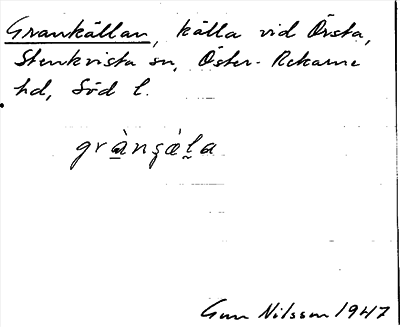 Grankällan, källa vid Örsta,
Stenkvista sn, Öster-Rekarne
hd, Söd l.
grànşæ̀l̰a
Gun Nilsson 1947